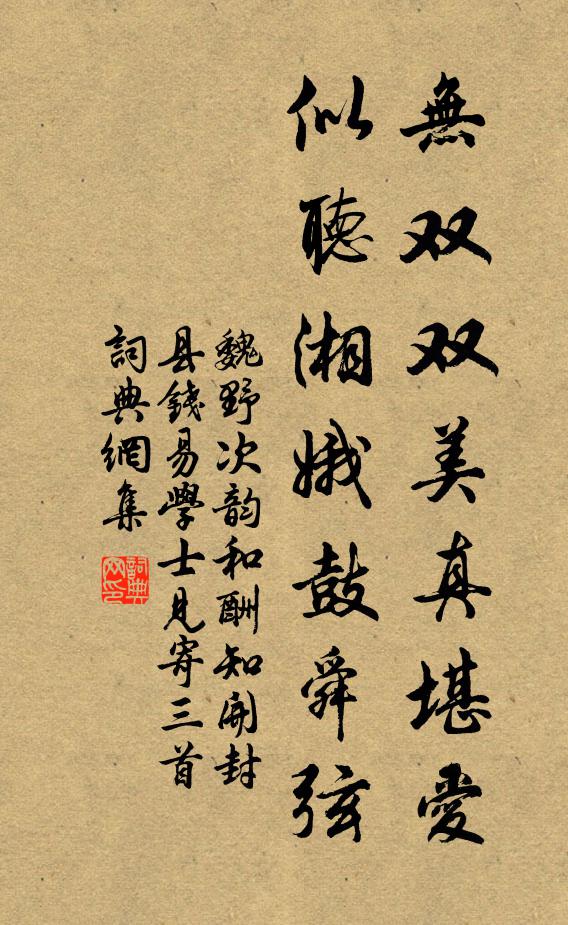 無双双美真堪愛
似聽湘娥鼓舜弦
魏野次韵和酬知開封
县錢易學士見寄三首
詞典網集
詞典網印